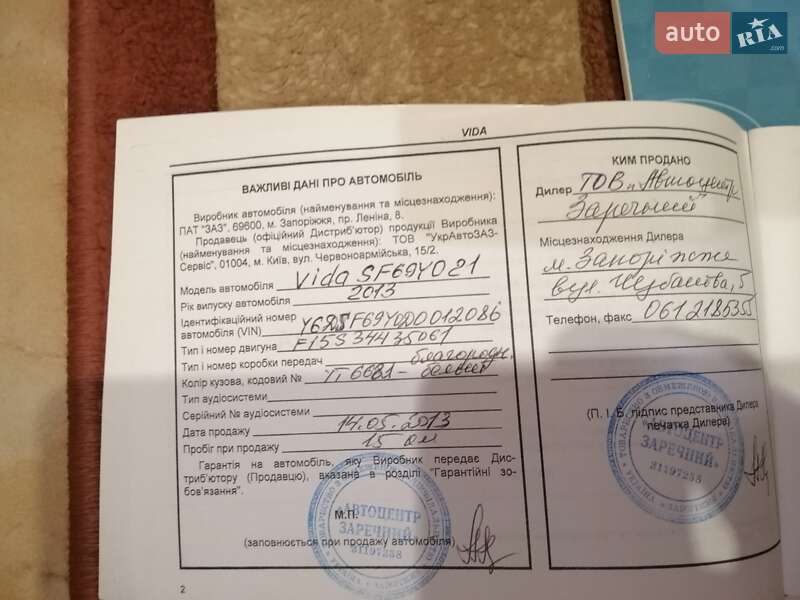 auto RIA .com
VIDA
ВАЖЛИВІ ДАНІ ПРО АВТОМОБІЛЬ
Виробник автомобіля (найменування та місцезнаходження):
ПАТ "ЗАЗ", 69600, м. Запоріжжя, пр. Леніна, 8.
Продавець (офіційний Дистриб'ютор) продукції Виробника
(найменування та місцезнаходження): ТОВ "УкрАвтоЗАЗ-
Сервіс", 01004, м. Київ, вул. Червоноармійська, 15/2.
Модель автомобіля Vida SF69Y021
Рік випуску автомобіля 2013
Ідентифікаційний номер
автомобіля (VIN)
Тип і номер двигуна F15S34435061
Тип і номер коробки передач
Колір кузова, кодовий №
Тип аудіосистеми
Серійний № аудіосистеми
Дата продажу 14.05.2013
Пробіг при продажу 15 км
Гарантія на автомобіль, яку Виробник передає Дис-
триб'ютору (Продавцю), вказана в розділі "Гарантійні зо-
бов'язання".
М.П.
(заповнюється при продажу автомобіля)
"АВТОЦЕНТР
ЗАРЕЧНИЙ"
31197258
2
КИМ ПРОДАНО
Дилер ТОВ "Автоцентр
Заречный"
Місцезнаходження Дилера
м. Запоріжжя
вул.
Телефон, факс 061 2185355
(П. І. Б. підпис представника Дилера
печатка Дилера)
"АВТОЦЕНТР
ЗАРЕЧНИЙ"
31197258